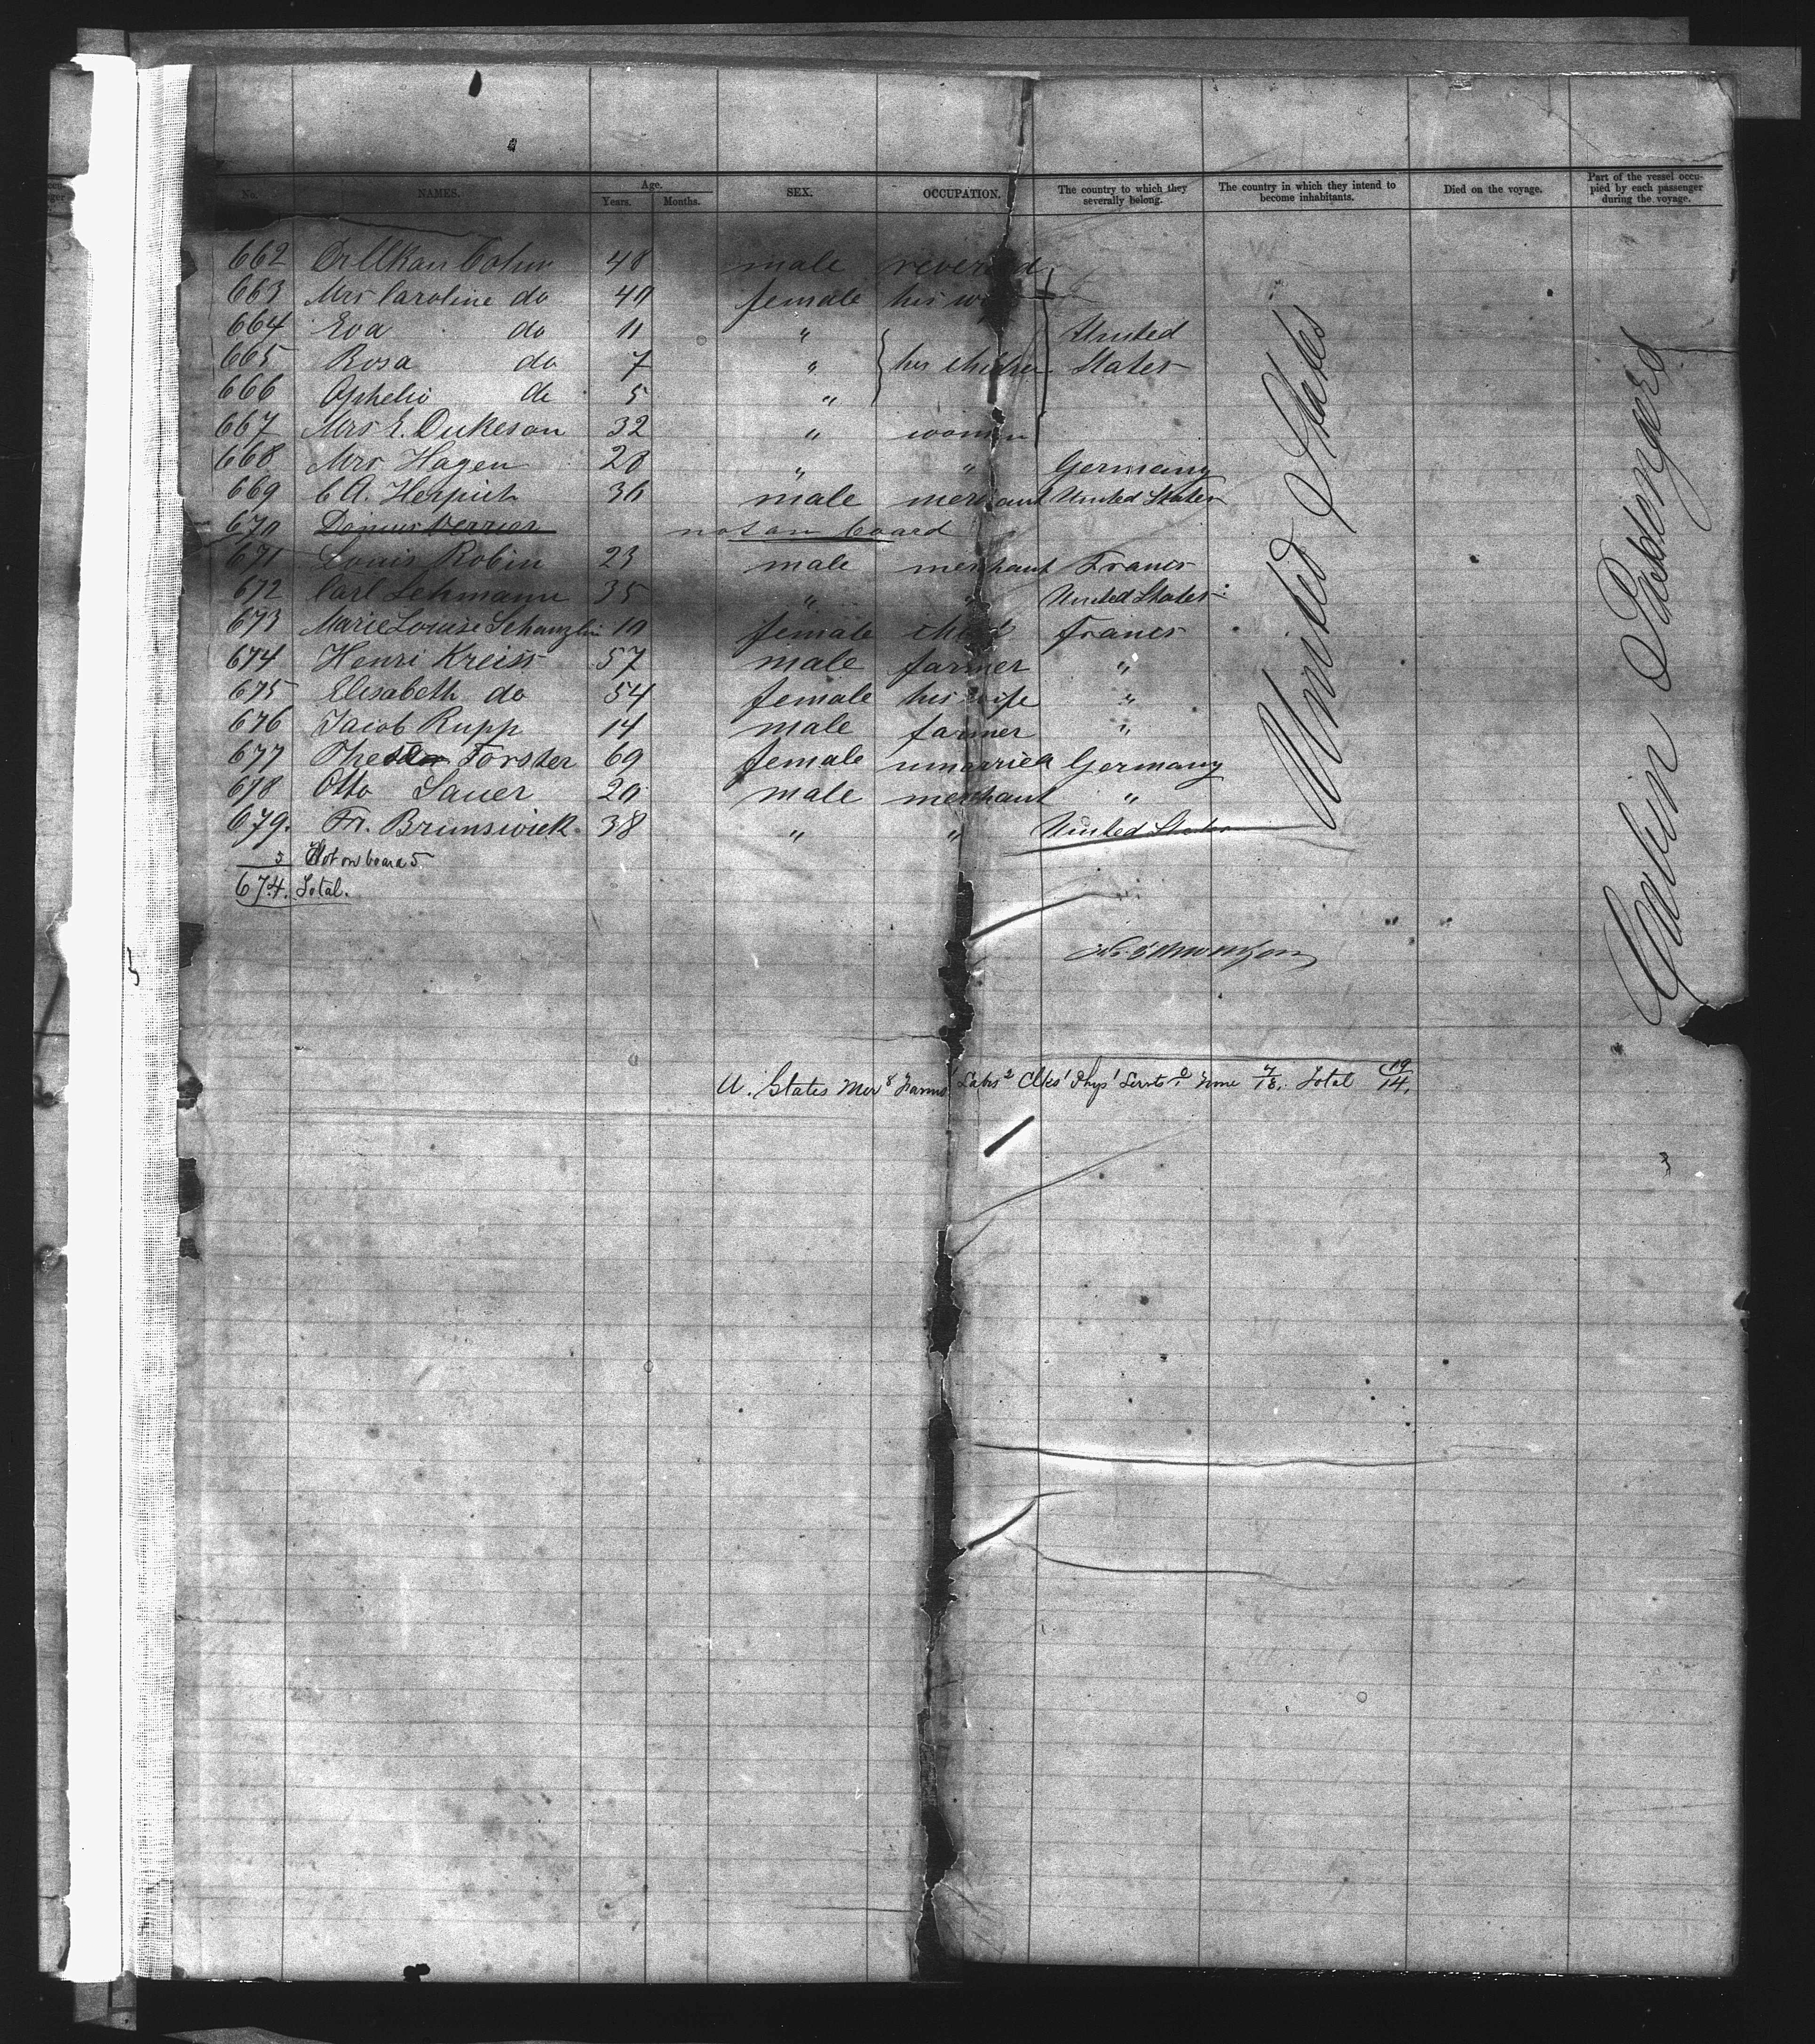 No. NAMES. Age. Years. Months. SEX. OCCUPATION. The country to which they severally belong. The country in which they intend to become inhabitants. Died on the voyage. Part of the vessel occupied by each passenger during the voyage.
662 48 male reverend
663 Mrs Caroline do 40 female his wife
664 Eva do 11 " United
665 Rosa do 7 " his children States
666 Ophelia do 5 "
667 Mrs E. Dukeson 32 " woman
668 Mrs Hagen 28 " " Germany
669 C A. Herpich 36 male merchant United States
670 Verrier not on board
671 Louis Robin 23 male merchant France
672 Carl Lehmann 35 " " United States
673 Marie Louise Schanzlin 10 female child France
674 Henri Kreiss 57 male farmer "
675 Elisabeth do 54 female his wife "
676 Jacob Rupp 14 male farmer "
677 Forster 69 female unmarried Germany
678 Otto Sauer 20 male merchant "
679. Fr. Brunswick 38 " " United States
5 Not on board 5
674. Total.
United States
Cabin Passengers
U. States Mer 8 Farms 1 Labs 2 Clks 1 Phys 1 Servts None Total 14.